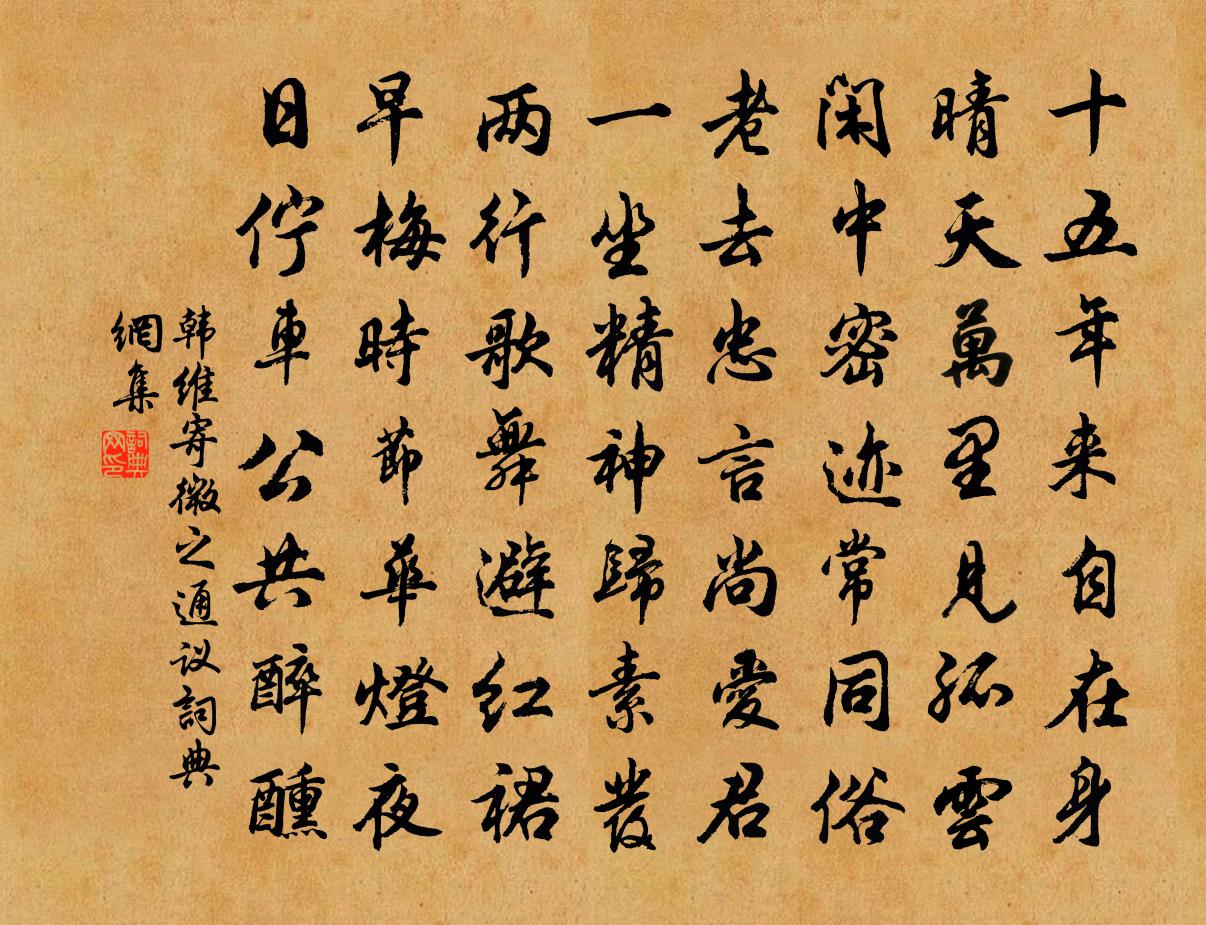 十五年来自在身
晴天萬里見孤雲
閑中密迹常同俗
老去忠言尚愛君
一坐精神歸素髮
两行歌舞避红裙
早梅時節華燈夜
日佇車公共醉醺
韩維寄微之通议詞典
網集
詞典
网印